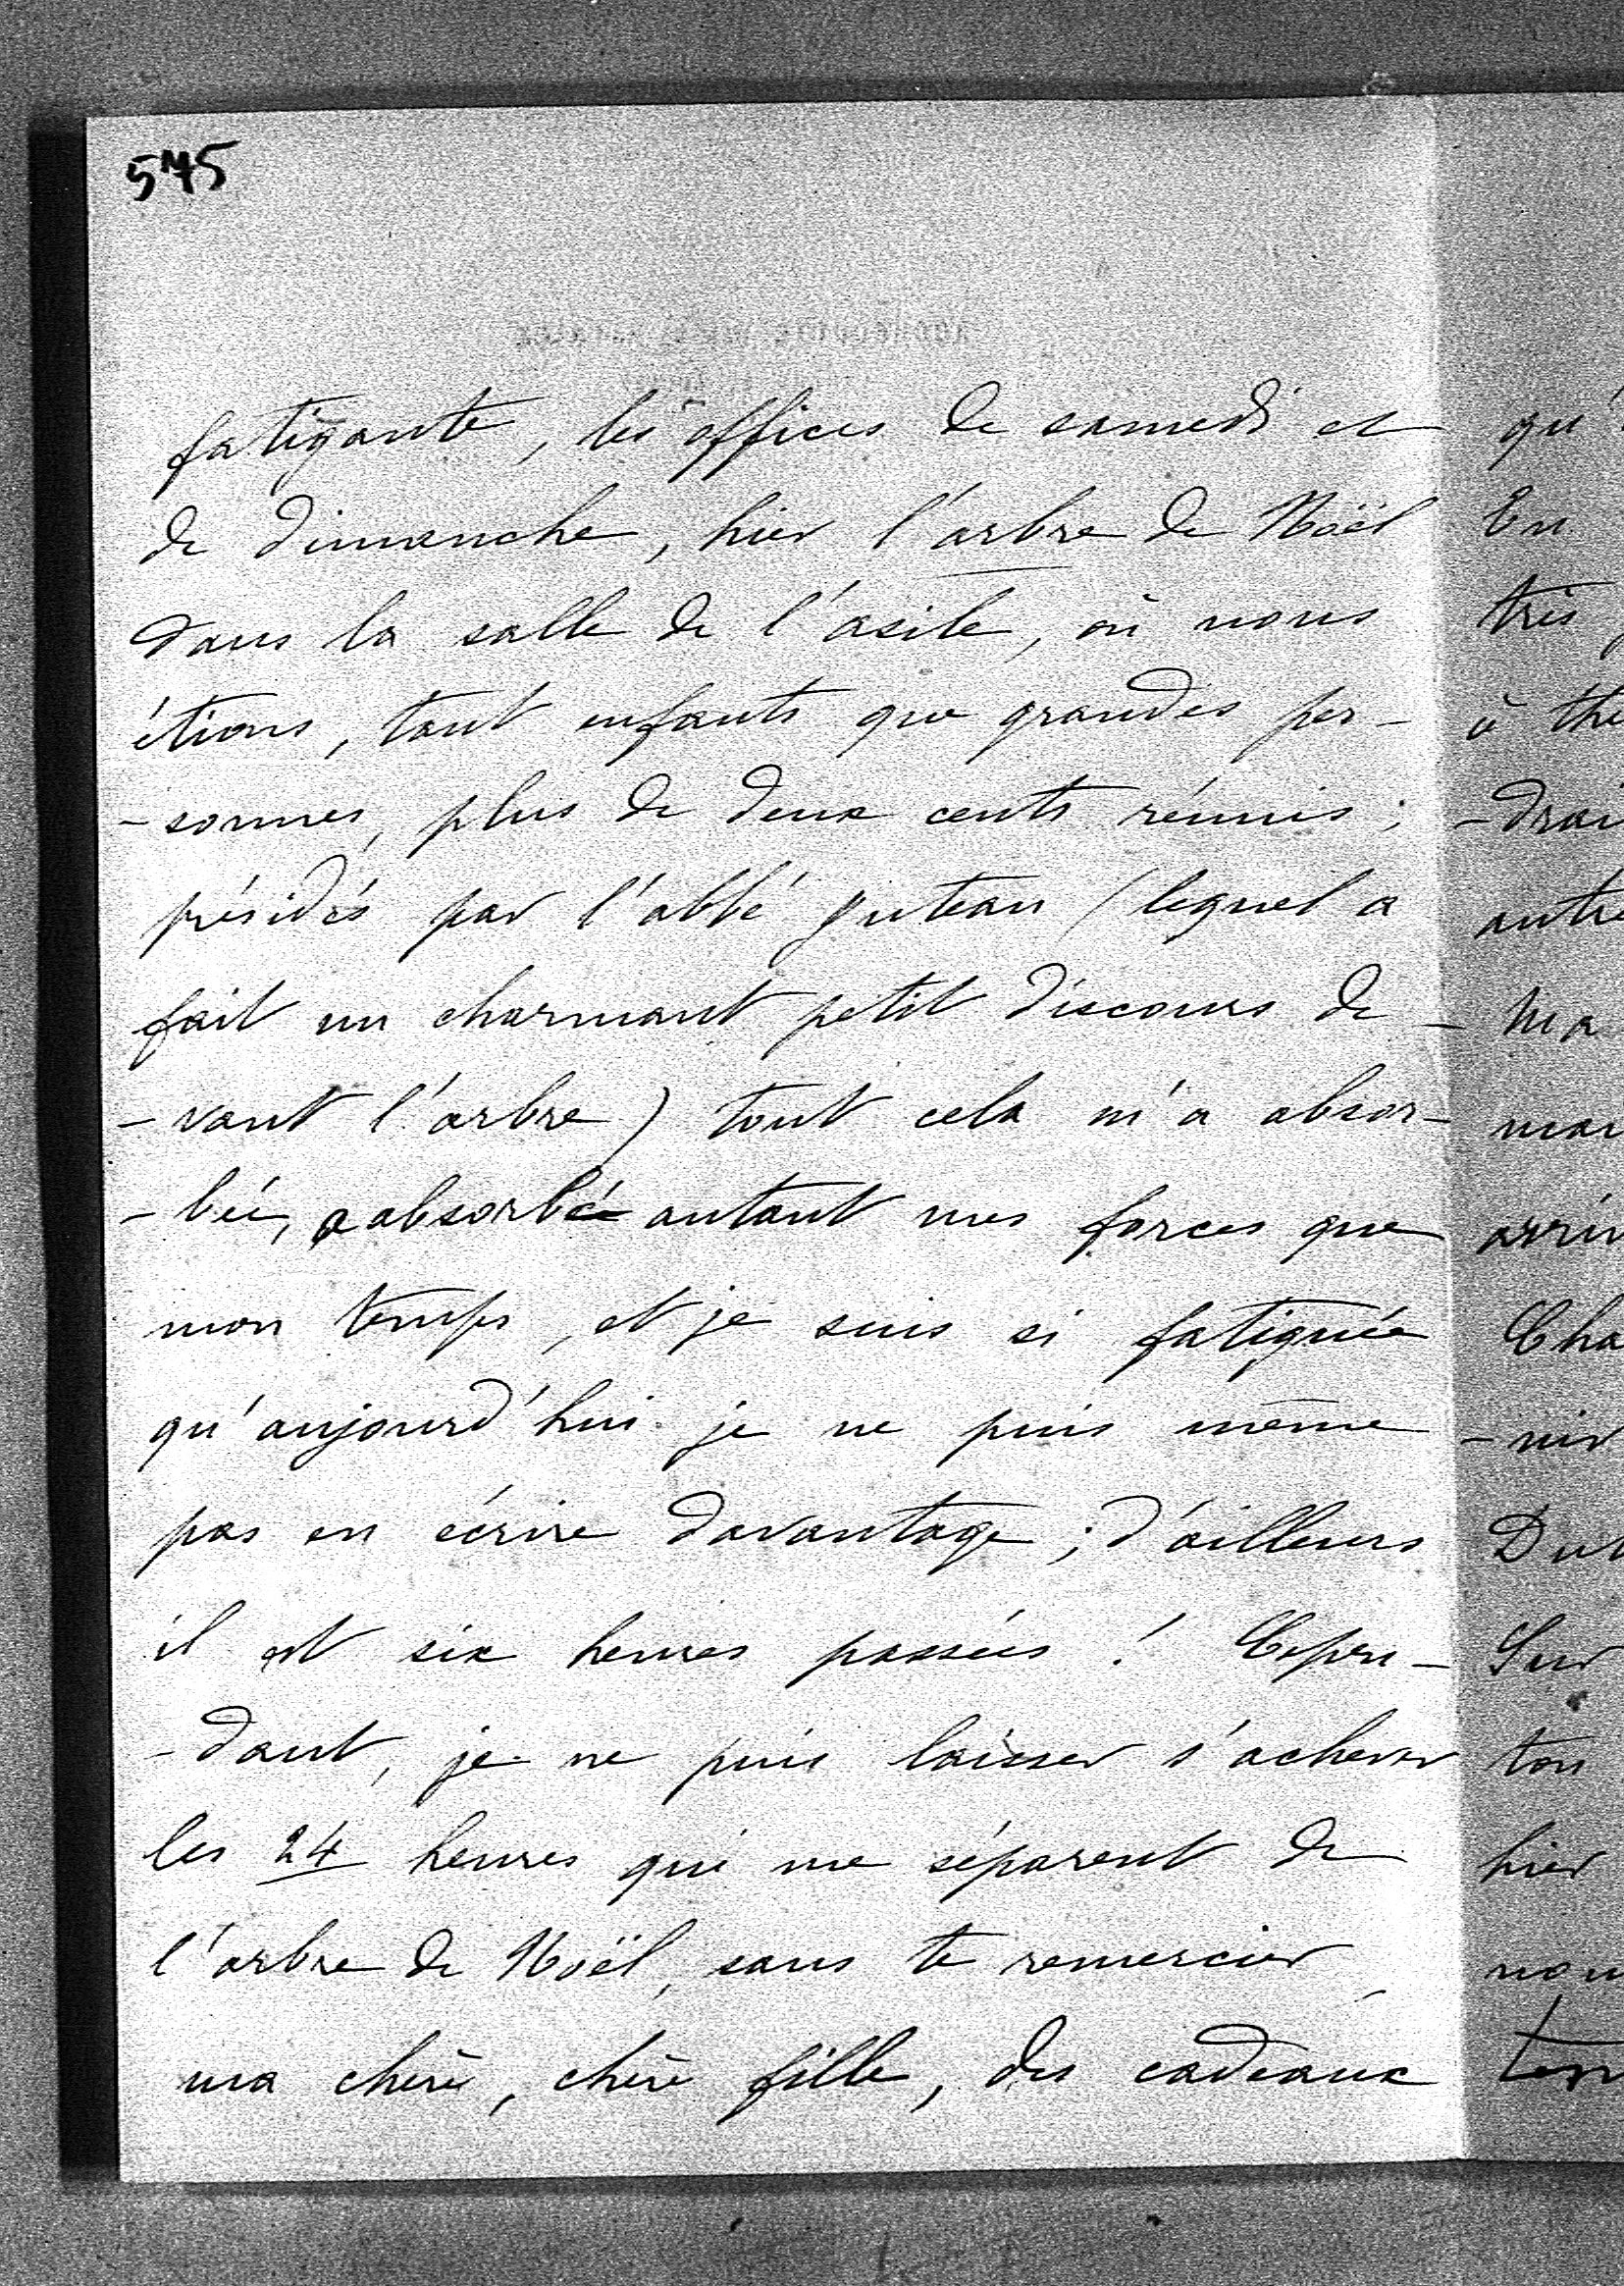 575
fatigante, les offices de samedi et
de dimanche, hier l'arbre de Noël
dans la salle de l'asile, où nous
étions, tant enfants que grandes per-
-sonnes, plus de deux cents réunis ;
présidés par l'abbé Puteau (lequel a
fait un charmant petit discours de-
-vant l'arbre) tout cela m'a absor-
-bée, a absorbé autant mes forces que
mon temps, et je suis si fatiguée
qu'aujourd'hui je ne puis même
pas en écrire davantage ; d'ailleurs
il est six heures passées ! Cepen-
-dant, je ne puis laisser s'achever
les 24 heures qui me séparent de
l'arbre de Noël, sans te remercier,
ma chère, chère fille, des cadeaux
qu'
En
très
à thé
-drai
autre
Ma
mar
arriv
Cha
-nir
Dub
Sur
ton
hier
nou
tem